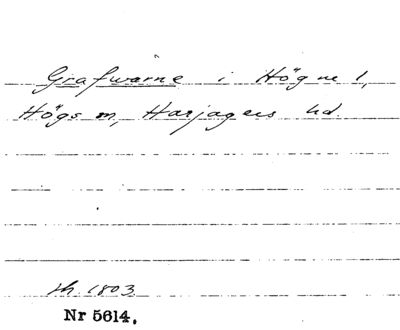 Grafwarne i Högne 1,
Högs sn, Harjagers hd.
sk. 1803
Nr 5614.